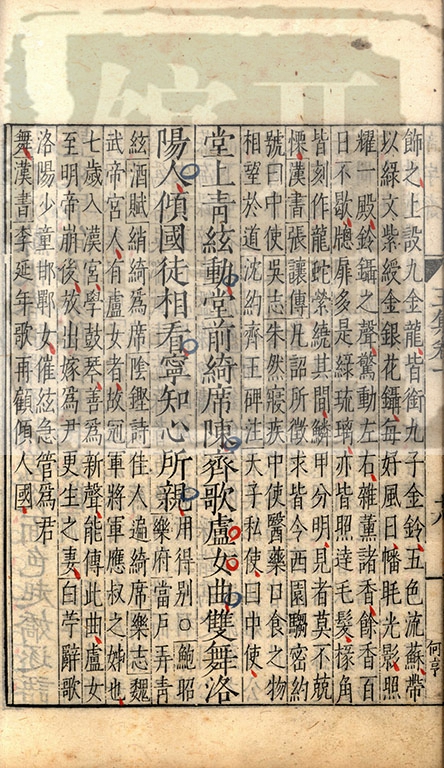 飾之上設九金龍皆銜九子金鈴五色流蘇帶
以綠文紫綬金銀花鑷每好風日幡眊光影照
耀一殿鈴鑷之聲驚動左右雜薰諸香餘香百
日不歇牕扉多是綠琉璃亦皆照達毛髮椽角
皆刻作龍蛇縈繞其間鱗甲分明見者莫不兢
慄漢書張讓傳凡詔所徵求皆令西園騶密約
號曰中使吳志朱然寢疾中使醫藥口食之物
相望於道沈約齊王碑注天子私使曰中使
堂上青絃動堂前綺席陳齊歌盧女曲雙舞洛
陽人傾國徒相看寧知心所親
七用得别○鮑昭
樂府當戶弄青
絃酒賦綃綺為席陰鏗詩佳人遍綺席樂志魏
武帝宮人有盧女者故冠軍將軍應叔之姊也
七歲入漢宮學鼓琴善為新聲能傳此曲盧女
至明帝崩後放出嫁為尹更生之妻白苧辭歌
洛陽少童邯鄲女催絃急管為君
舞漢書李延年歌再顧傾人國
何亨